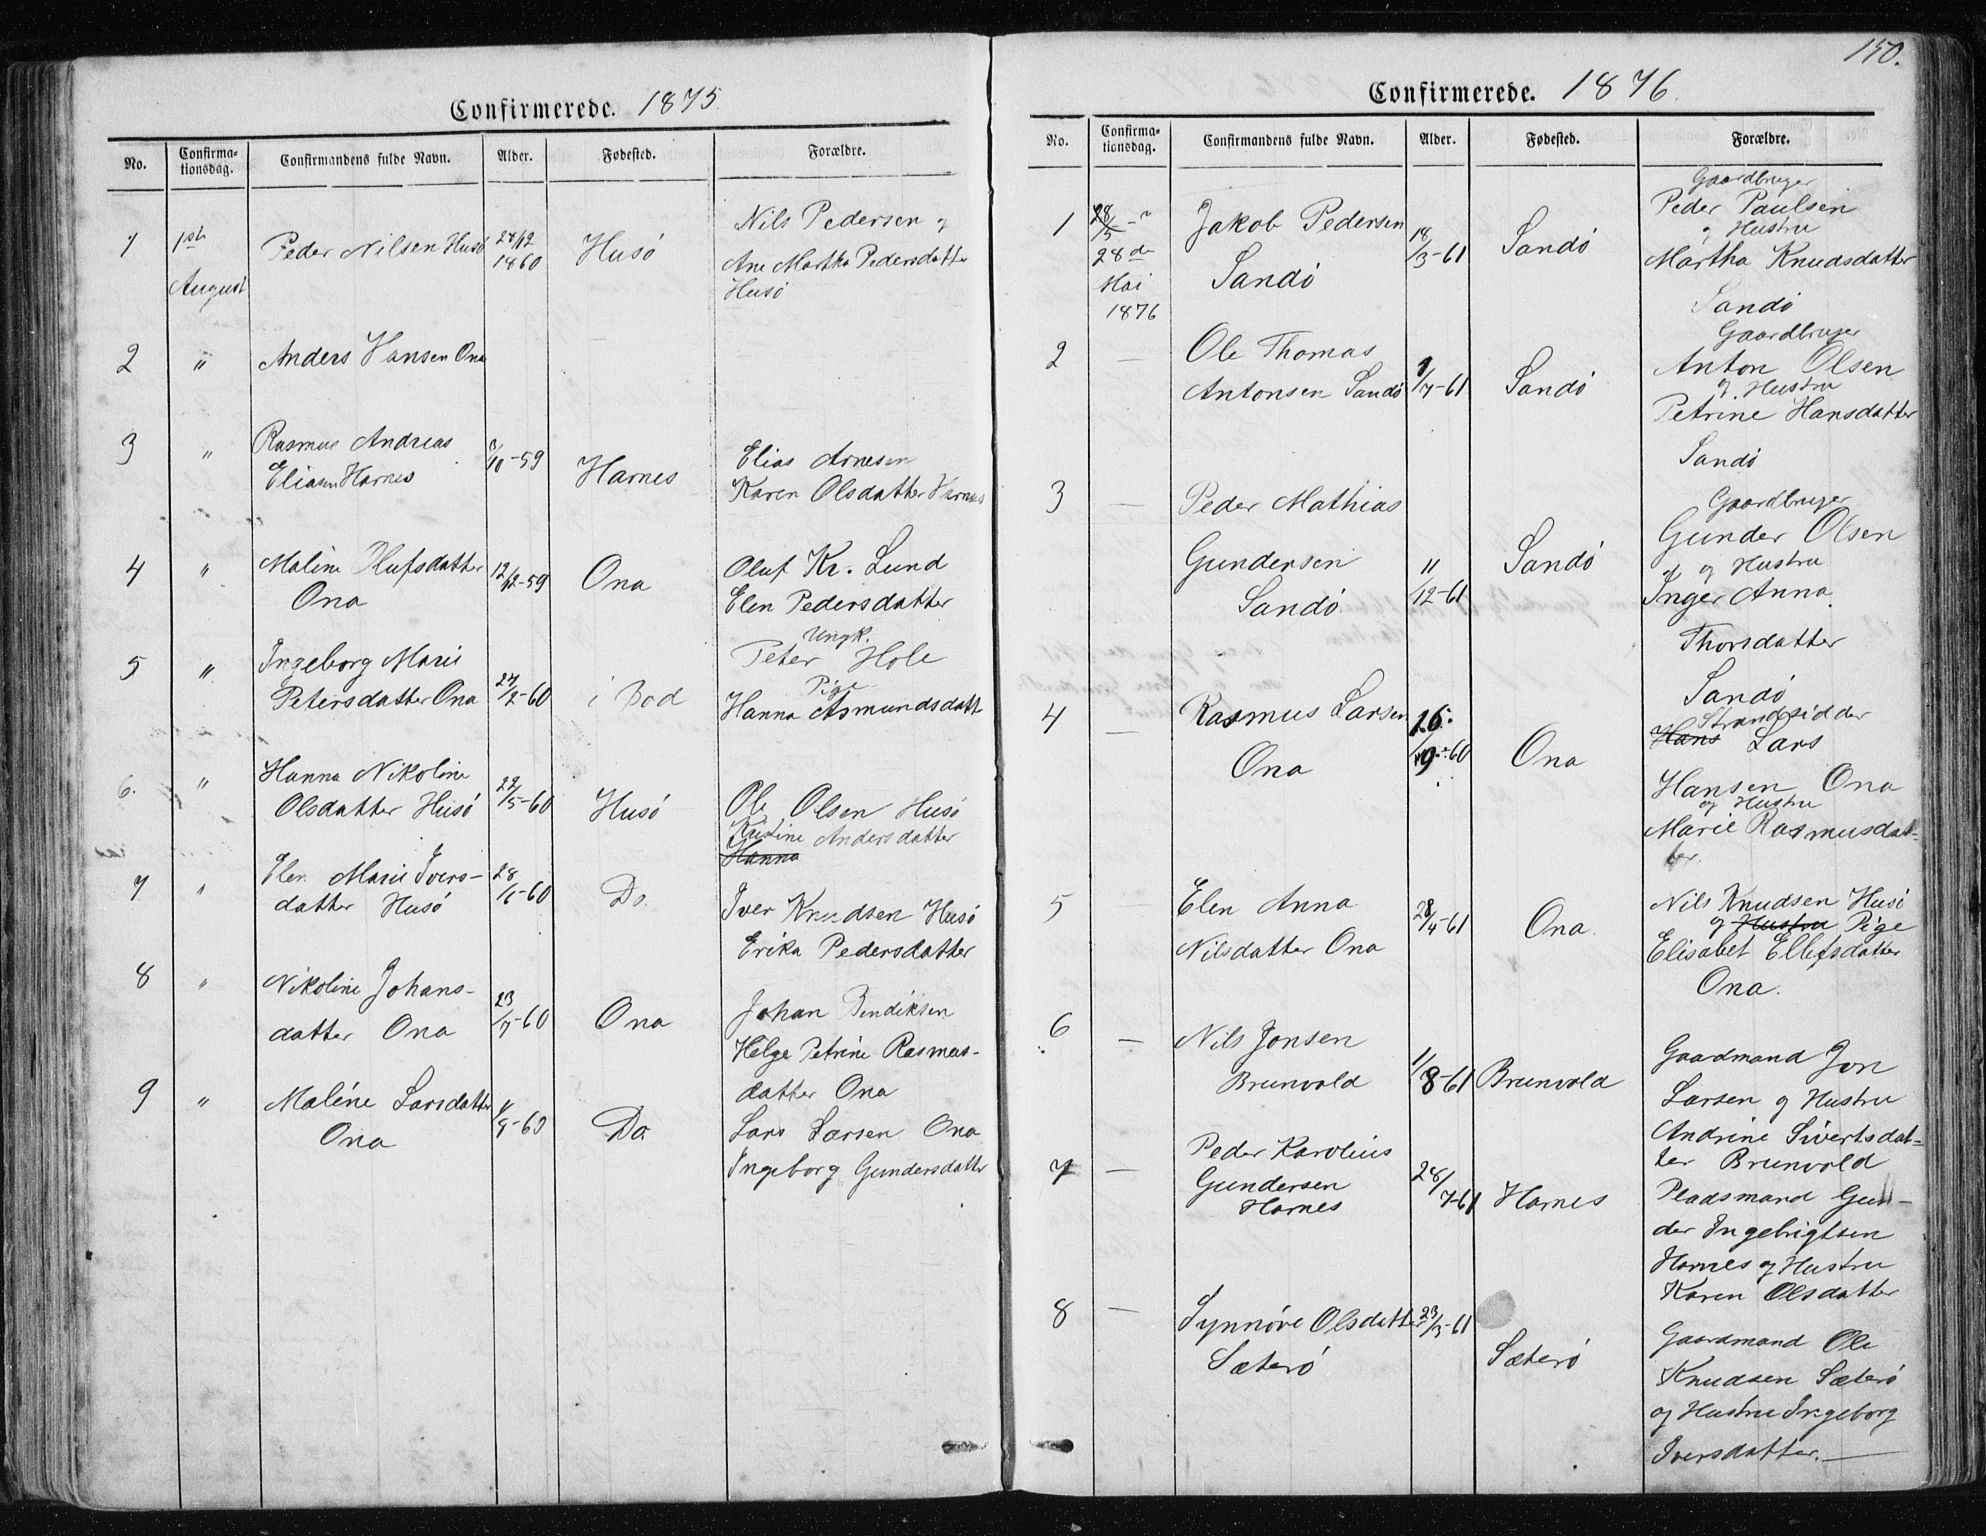 Confirmerede. 1875.
No. Confirma-tionsdag. Confirmandens fulde Navn. Alder. Fødested. Forældre.
1 1ste August Peder Nilsen Husö 24/12 1860 Husö Nils Pedersen og
Ane Martha Pedersdatter
Husö
2 " Anders Hansen Ona
3 " Rasmus Andreas
Eliasen Harnes /10-59 Harnes Elias Arnesen
Karen Olsdatter Harnes
4 " Maline Olufsdatter
Ona 12/12-59 Ona Oluf Kr. Lund
Elen Pedersdatter
5 " Ingeborg Marie
Petersdatter Ona 27/2-60 i Bod Ungk.
Peter Hole
Pige
Hanna Asmundsdatt
6. " Hanna Nikoline
Olsdatter Husö 22/5-60 Husö Ole Olsen Husö
Kristine Andersdatter
Hanna
7 " Elen Marie Ivers-
datter Husö 28/-60 Do. Iver Knudsen Husö
Erika Pedersdatter
8 " Nikoline Johans-
datter Ona 23/7-60 Ona Johan Bendiksen
Helge Petrine Rasmus-
datter Ona
9 " Maléne Larsdatter
Ona /9-60 Do. Lars Larsen Ona
Ingeborg Gundersdatter
150.
Confirmerede. 1876
No. Confirma-tionsdag. Confirmandens fulde Navn. Alder. Fødested. Forældre.
1 28/5
28de
Mai
1876 Jakob Pedersen
Sandö 18/3-61 Sandö Gaardbruger
Peder Paulsen
og Hustru
Martha Knudsdatter
Sandö
2 — Ole Thomas
Antonsen Sandö /7-61 Sandö Gaardbruger
Anton Olsen
og Hustru
Petrine Hansdatter
Sandö
3 — Peder Mathias
Gundersen
Sandö 11/12-61 Sandö Gaardbruger
Gunder Olsen
og Hustru
Inger Anna
Thorsdatter
Sandö
4 — Rasmus Larsen
Ona 16/9-60 Ona Strandsidder
Hans Lars
Hansen Ona
og Hustru
Marie Rasmusdat-
ter.
5 — Elen Anna
Nilsdatter Ona 28/4-61 Ona Nils Knudsen Husö
og Hustru Pige
Elisabet Ellefsdatter
Ona.
6 — Nils Jonsen
Brunvold 1/8-61 Brunvold Gaardmand Jon
Larsen og Hustru
Andrine Sivertsdat-
ter Brunvold
7 — Peder Karolius
Gundersen
Harnes 28/7-61 Harnes Pladsmand Gun-
der Ingebrigtsen
Harnes og Hustru
Karen Olsdatter
8 — Synnöve Olsdatter
Sæterö 23/3-61 Sæterö Gaardmand Ole
Knudsen Sæterö
og Hustru Ingeborg
Iversdatter.—